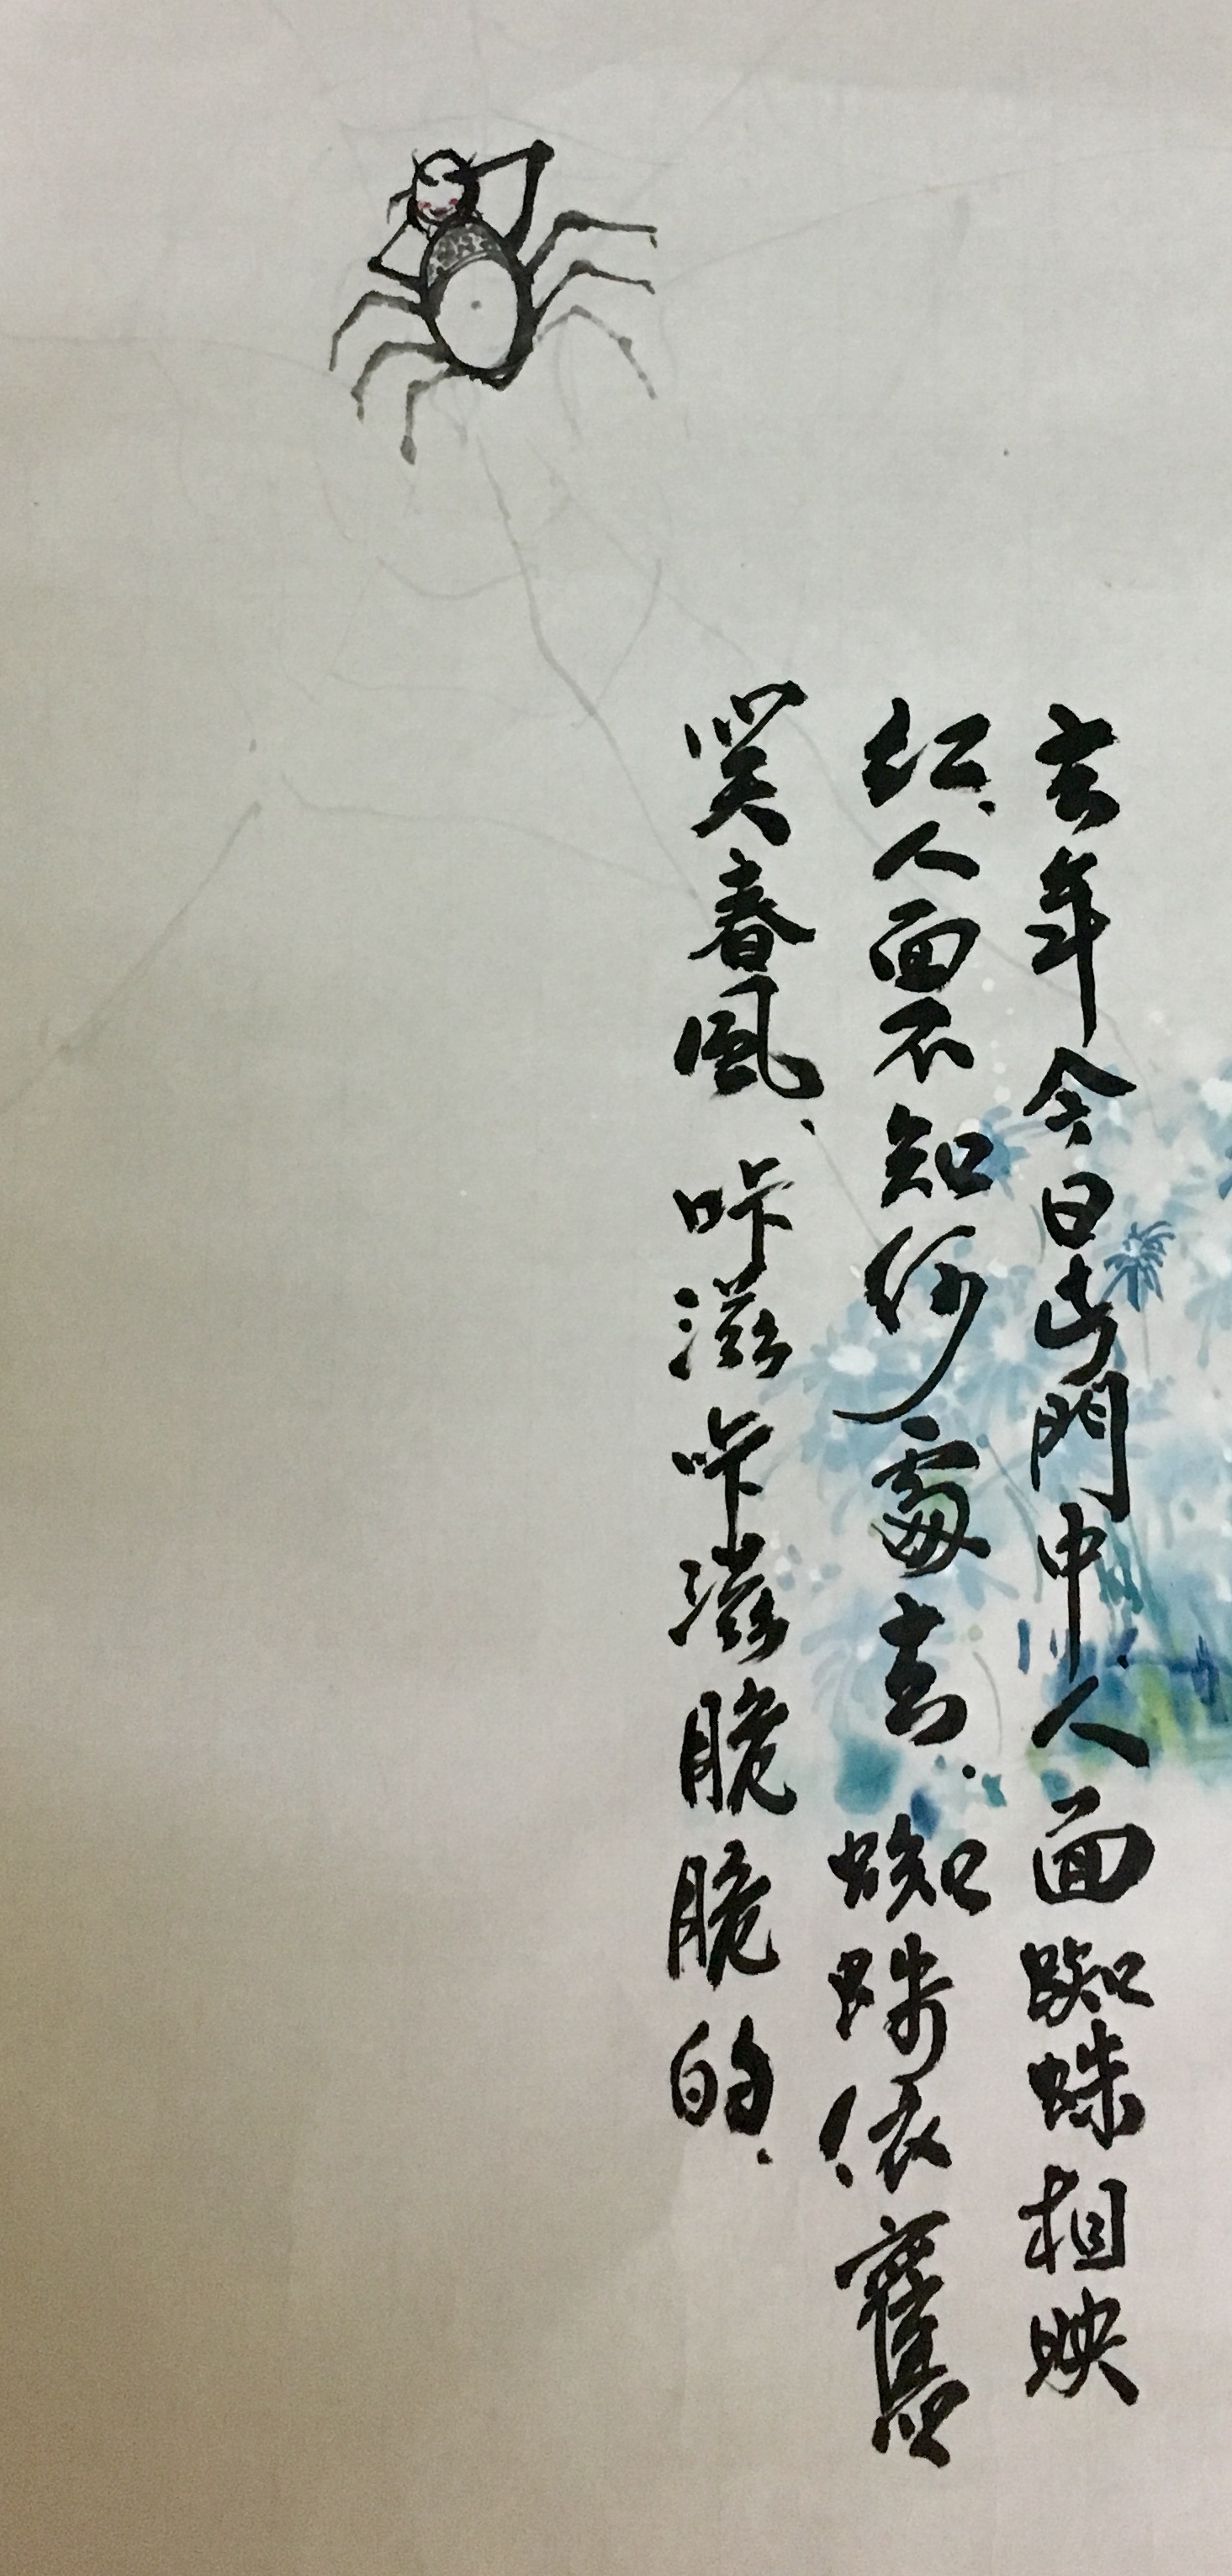 去年今日此門中、人面蜘蛛相映
紅、人面不知何處去、蜘蛛依舊
笑春風、咔滋咔滋脆脆的、